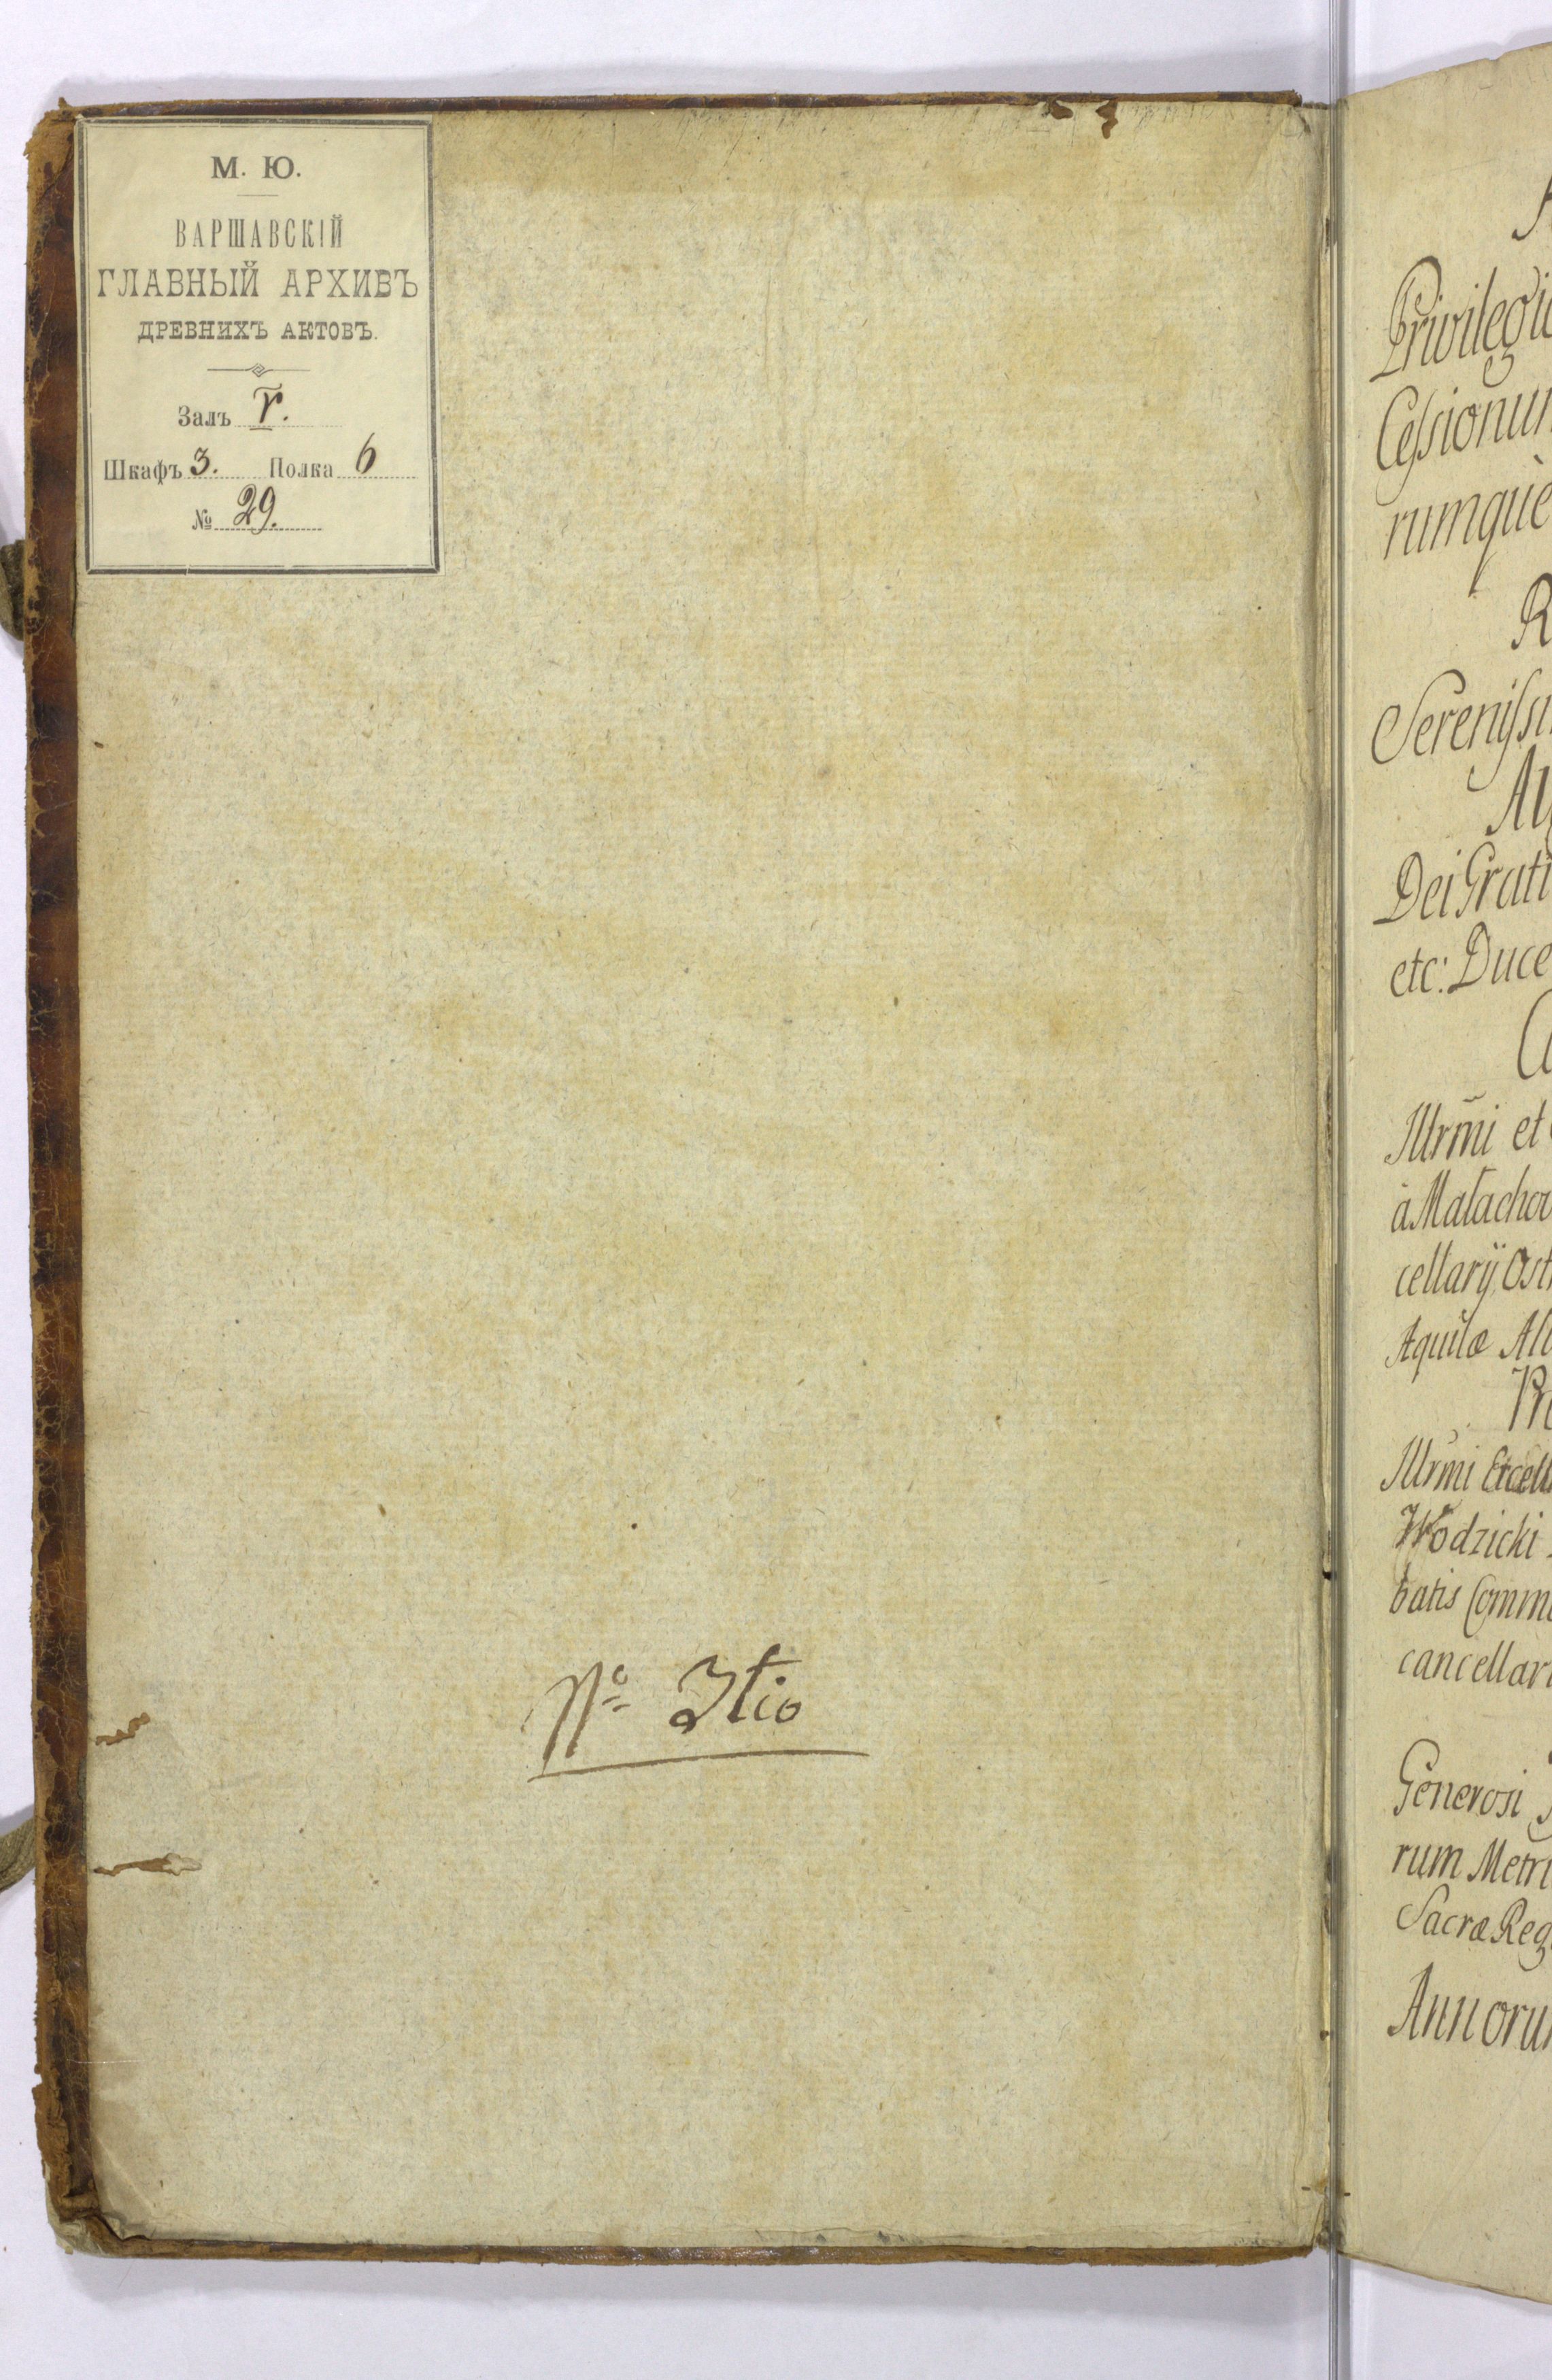 М. Ю.
ВАРШАВСКІЙ
ГЛАВНЫЙ АРХИВЪ
ДРЕВНИХЪ АКТОВЪ.
Залъ V.
Шкафъ 3. Полка 6
№ 29.
No 3tio
Privilegio
Cessionum
rumquè
R
Serenissi
Au
Dei Grati
etc: Duce
Illrmi et
à Małachov
cellarij Ost
Aquilæ Alb
Illrmi Excell
Wodzicki
batis Comme
cancellari
Generosi
rum Metri
Sacræ Reg
Annorum